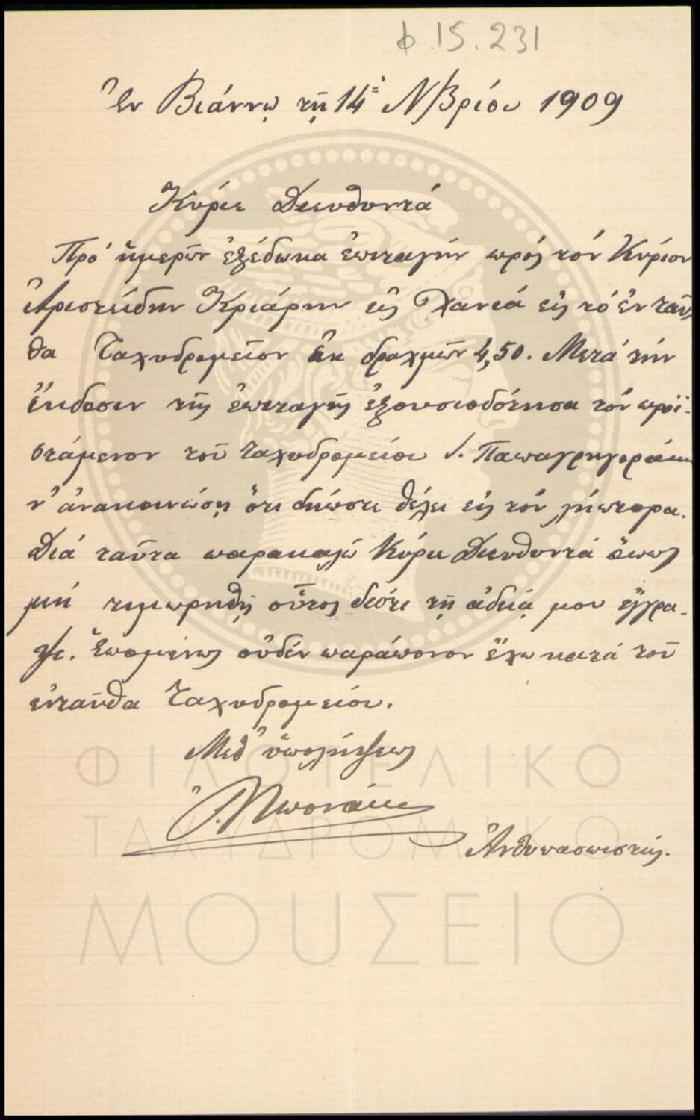 φ.15.231
Ἐν Βιάννῳ τῇ 14ῃ Νβρίου 1909
Κύριε Διευθυντά
Πρό ἡμερῶν ἐξέδωκα ἐπιταγήν πρός τόν Κύριον
Ἀριστείδην Κριάρην εἰς Χανιά εἰς τό ἐνταῦ
θα Ταχυδρομεῖον ἐκ δραχμῶν 4,50. Μετά τήν
ἔκδοσιν τῆς ἐπιταγῆς ἐξουσιοδότησα τόν προϊ-
στάμενον τοῦ ταχυδρομείου Ι. Παπαγρηγοράκην
ν' ἀνακοινώσῃ ὅτι δήποτε θέλει εἰς τόν λήπτορα.
Διά ταῦτα παρακαλῶ Κύριε Διευθυντά ὅπως
μή τιμωρηθῇ οὗτος διότι τῇ ἀδείᾳ μου ἔγρα-
ψε. Ἑπομένως οὐδέν παράπονον ἔχω κατά τοῦ
ἐνταῦθα Ταχυδρομείου.
Μεθ' ὑπολήψεως
Ἀνθυπασπιστής.
ΦΙΛΟΤΕΛΙΚΟ
ΤΑΧΥΔΡΟΜΙΚΟ
ΜΟΥΣΕΙΟ